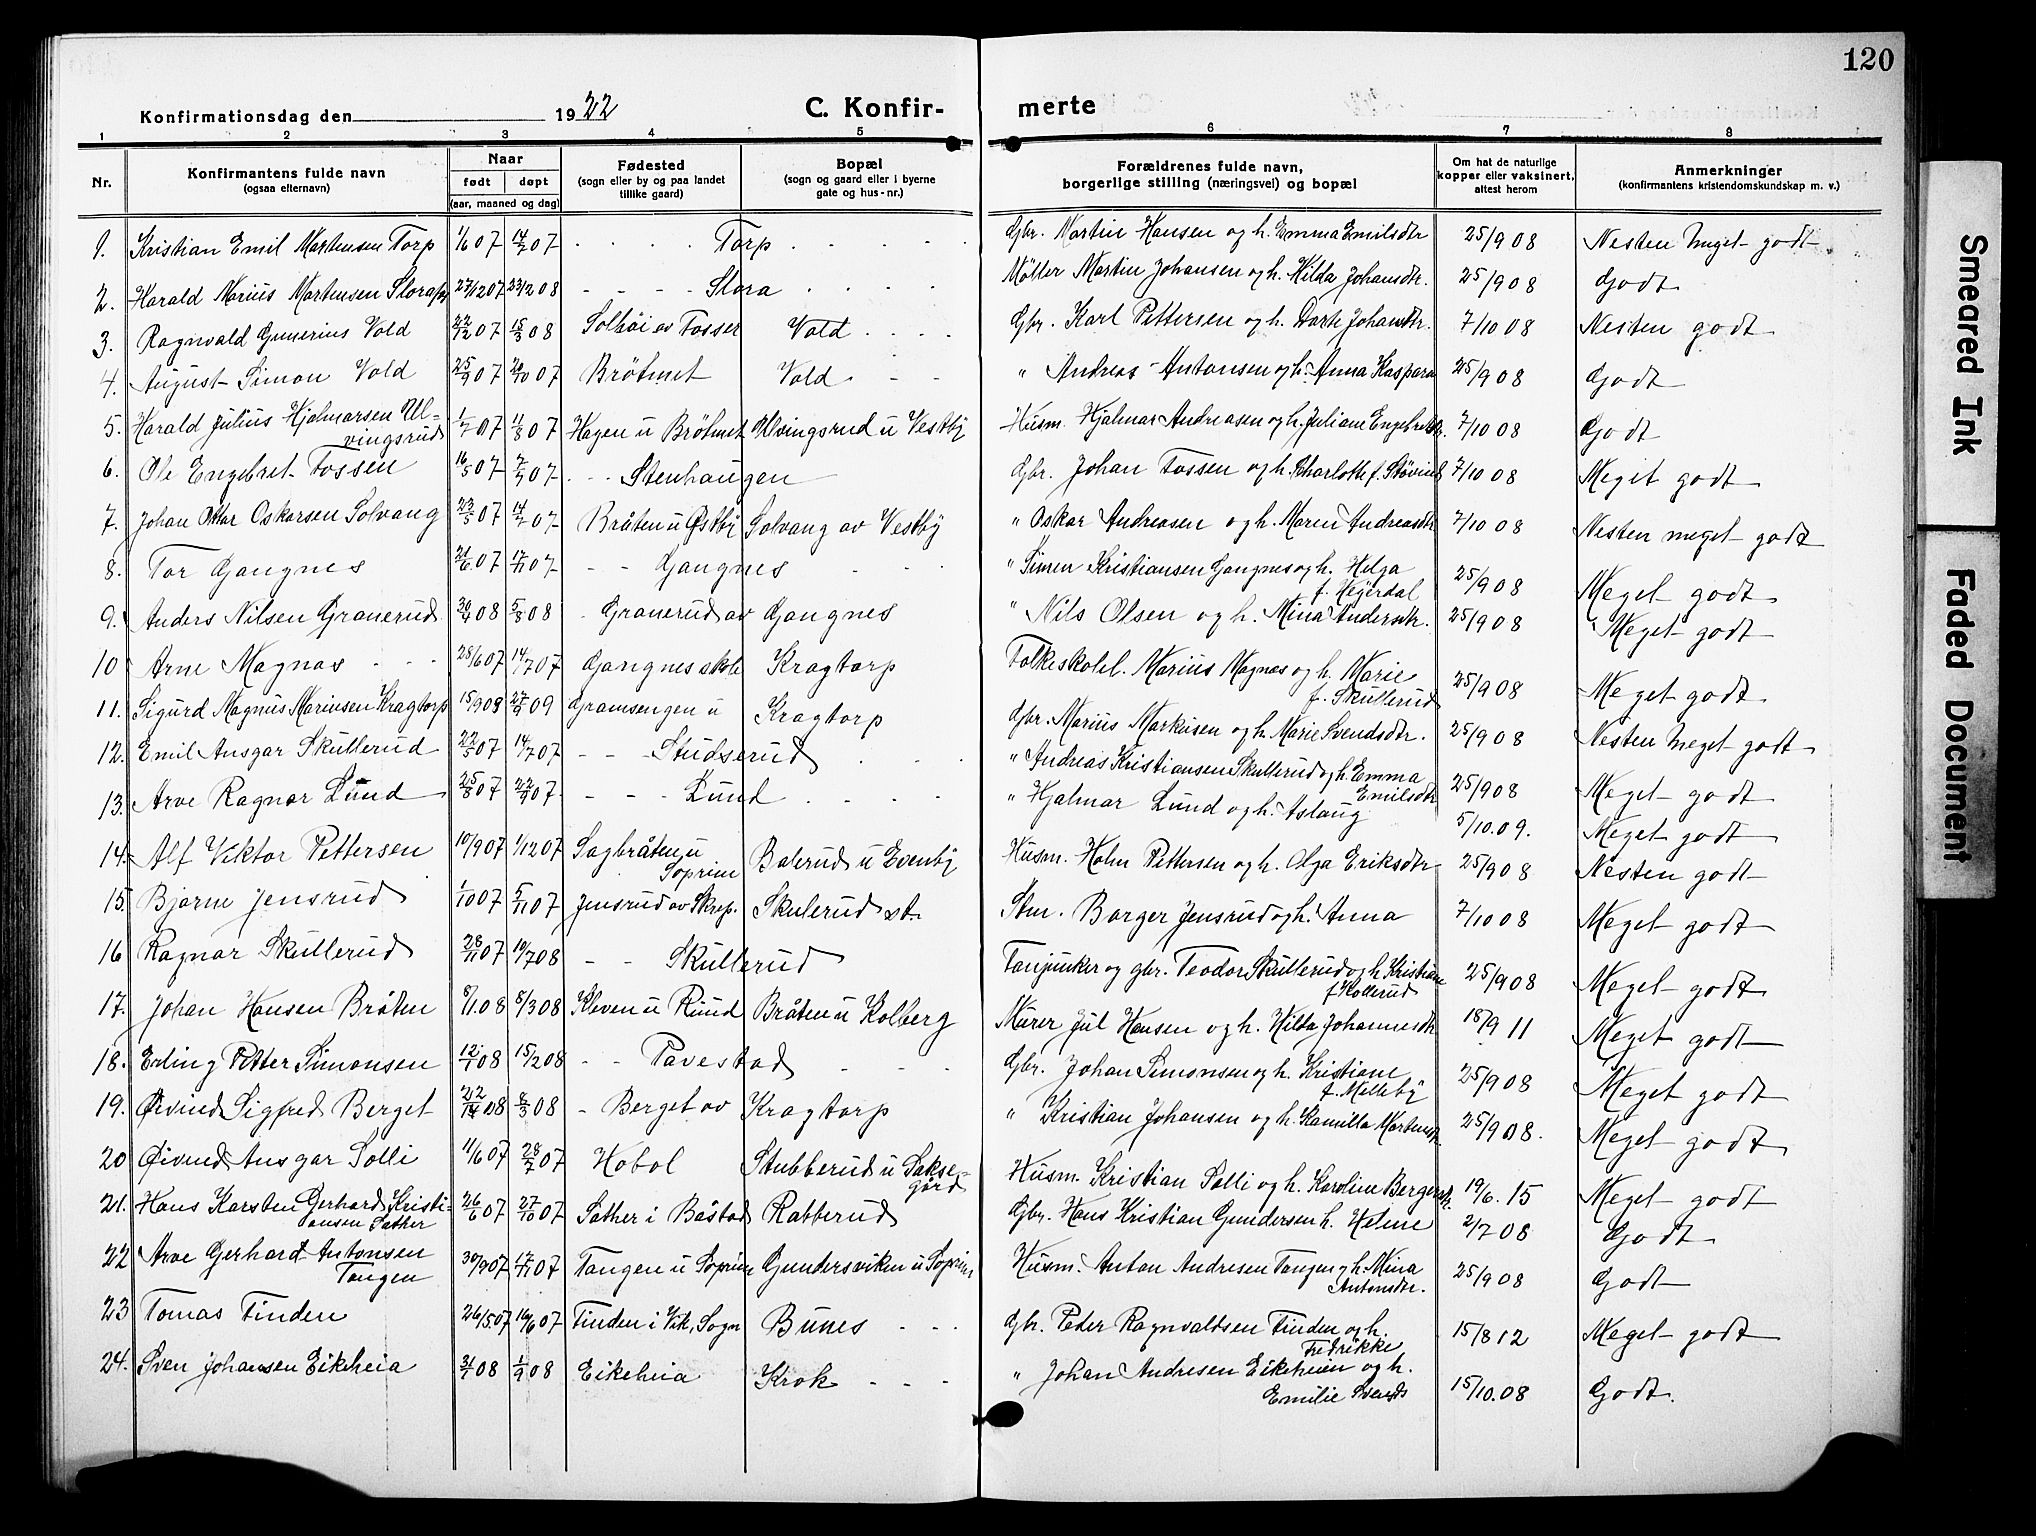 120
Konfirmationsdag den 1922
C. Konfirmerte
1 2 3 4 5 6 7 8
Nr. Konfirmantens fulde navn (ogsaa efternavn) Naar født døpt (aar, maaned og dag) Fødested (sogn eller by og paa landet tillike gaard) Bopæl (sogn og gaard eller i byerne gate og hus-nr.) Forældrenes fulde navn, borgerlige stilling (næringsvei) og bopæl Om hat de naturlige kopper eller vaksinert, attest herom Anmerkninger (konfirmantens kristendomskundskap m. v.)
1. Kristian Emil Martensen Torp 1/6 07 14/7 07 Torp Gbr. Martin Hansen og h. Emma Emilsdtr 25/9 08 Nesten meget godt
2. Harald Marius Martensen 27/12 07 23/2 08 Slora Möller Martin Johansen og h. Hilda Johansdtr. 25/9 08 Godt
3. Ragnvald Gunerius Vold 22/12 07 15/3 08 Solhöi av Fosser Vold Gbr. Karl Pettersen og h. Dorte Johansdtr. 7/10 08 Nesten godt
4. August Simon Vold 25/9 07 20/10 07 Brötmet Vold " Andreas Antonsen og h. Anna Kaspara 25/9 08 Godt
5. Harald Julius Hjalmarsen Ulvingsrud 1/7 07 11/8 07 Hagen u Brötmet Ulvingsrud u Vestby Husm. Hjalmar Andreasen og h. Juliane Engebretsdtr. 7/10 08 Godt
6. Ole Engebret Fossen 16/5 07 7/7 07 Stenhaugen Gbr. Johan Fossen og h. Charlotte f. Stövind 7/10 08 Meget godt
7. Johan Ottar Oskarsen Solvang 23/5 07 14/7 07 Bråten u Østby Solvang av Vestby " Oskar Andreasen og h. Maren Andreasdtr 7/10 08 Nesten meget godt
8. Tor Gangnes 21/6 07 17/11 07 Gangnes " Simen Kristiansen Gangnes og h. Helga f. Hegerdal 25/9 08 Meget godt
9. Anders Nilsen Granerud 30/4 08 5/8 08 Granerud av Gangnes " Nils Olsen og h. Mina Andersdtr. 25/9 08 Meget godt
10 Arne Magnas 28/6 07 14/7 07 Gangnes skole Kragtorp Folkeskolel. Marius Magnas og h. Marie f. Skullerud 25/9 08 Meget godt
11. Sigurd Magnus Mariusen Kragtorp 15/9 08 27/9 09 Gramsengen u Kragtorp Gbr. Marius Markusen og h. Marie Svendsdtr. 25/9 08 Nesten meget godt
12. Emil Ansgar Skullerud 22/5 07 14/7 07 Studserud " Andreas Kristiansen Skullerud og h. Emma Emilsdtr 25/9 08 Meget godt
13. Arve Ragnar Lund 25/8 07 22/9 07 Lund " Hjalmar Lund og h. Aslaug 5/10.09. Meget godt
14. Alf Viktor Pettersen 10/9 07 1/12 07 Sagbråten u Soprim Balerud u Evenby Husm. Holm Pettersen og h. Olga Eriksdtr 25/9 08 Nesten godt
15. Bjarne Jensrud 1/10 07 5/11 07 Jensrud av Skrep. Skulerud st. Stm. Borger Jensrud og h. Anna 7/10 08 Meget godt
16 Ragnar Skullerud 28/11 07 19/7 08 Skullerud Fanjunker og gbr. Teodor Skullerud og h Kristiane f Kollerud 25/9 08 Meget godt
17. Johan Hansen Bråten 8/1.08 8/3 08 Kleven u Ruud Bråten u Kolberg Murer Jul Hansen og h. Hilda Johannesdtr 18/9 11 Meget godt
18. Erling Petter Simonsen 12/1 08 15/2 08 Tavestad Gbr. Johan Simonsen og h. Kristiane f. Milleby 25/9 08 Meget godt
19. Øivind Sigfred Berget 08 8/3 08 Berget av Kragtorp " Kristian Johansen og h. Kamilla Martinsdtr. 25/9 08. Meget godt
20 Øivind Ansgar Solli 11/6 07 28/7 07 Hobol Stubberud u Saksegård Husm. Kristian Solli og h. Karoline Bergersdtr. 19/6. 15 Meget godt
21. Hans Karsten Gerhard Kristiansen Sather 26/6 07 27/10 07 Sather i Båstad Ratterud Gbr. Hans Kristian Gundersen h. Helene 2/7 08 Godt
22 Arve Gerhard Antonsen Tangen 30/9 07 17/11 07 Tangen u Soprim Gundersviken u Soprim Husm. Anton Andresen Tangen og h. Mina Antonsdtr. 25/9 08 Godt
23 Tomas Finden 26/5.07 16/6 07 Finden i Vik, Sogn Bunes Gbr. Peder Ragnvaldsen Finden og h. Fredrikke 15/8 12 Meget godt
24. Sven Johansen Eikeheia 31/7 08 1/9 08 Eikeheia Krok " Johan Andresen Eikeheien og h. Emilie Svends 15/10.08 Godt.
Smeared Ink
Faded Document